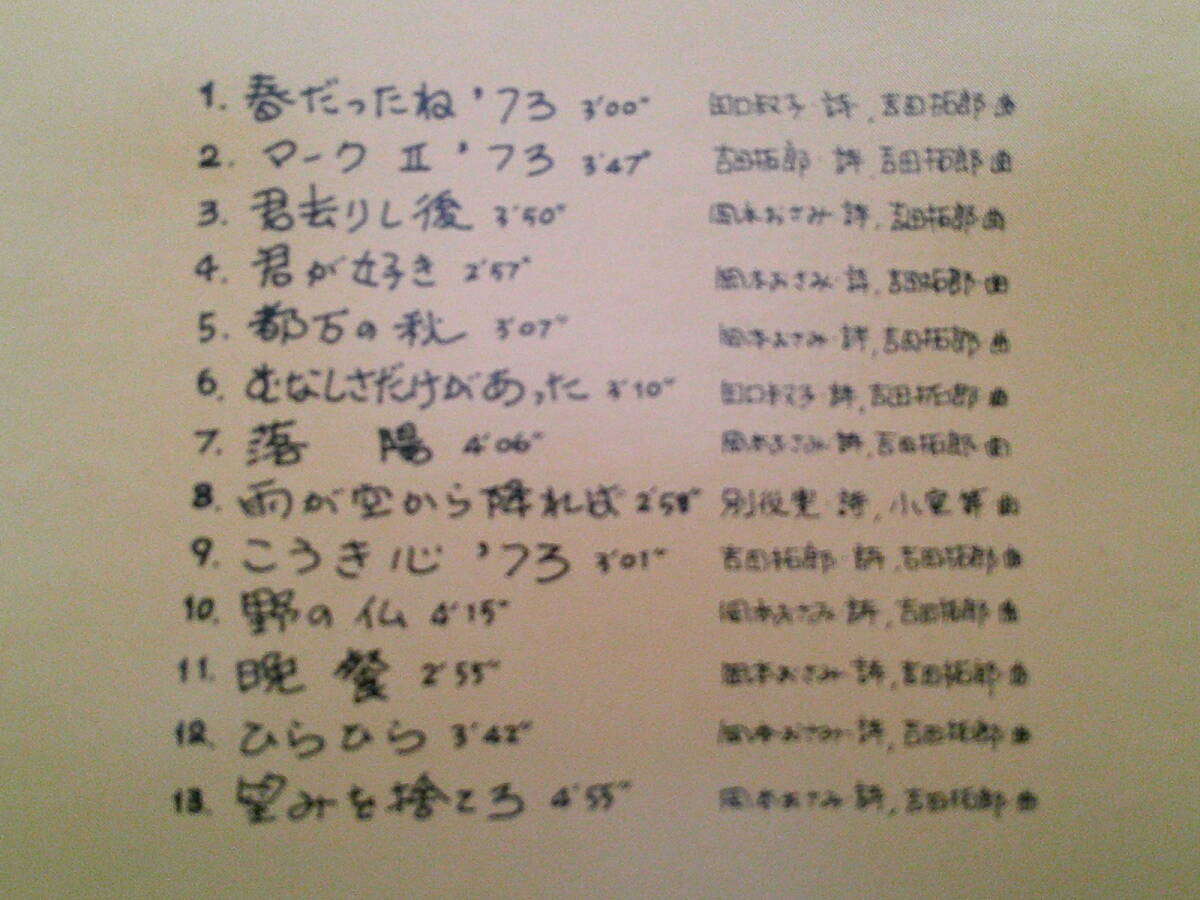 1. 春だったね '73 3'00" 田口叔子・詩, 吉田拓郎・曲
2. マーク Ⅱ '73 3'47" 吉田拓郎・詩, 吉田拓郎・曲
3. 君去りし後 3'50" 岡本おさみ・詩, 吉田拓郎・曲
4. 君が好き 2'57" 岡本おさみ・詩, 吉田拓郎・曲
5. 都万の秋 3'07" 岡本おさみ・詩, 吉田拓郎・曲
6. むなしさだけがあった 3'10" 田口叔子・詩, 吉田拓郎・曲
7. 落 陽 4'06" 岡本おさみ・詩, 吉田拓郎・曲
8. 雨が空から降れば 2'58" 別役実・詩, 小室等・曲
9. こうき心 '73 3'01" 吉田拓郎・詩, 吉田拓郎・曲
10. 野の仏 4'15" 岡本おさみ・詩, 吉田拓郎・曲
11. 晩 餐 2'55" 岡本おさみ・詩, 吉田拓郎・曲
12. ひらひら 3'42" 岡本おさみ・詩, 吉田拓郎・曲
13. 望みを捨てろ 4'55" 岡本おさみ・詩, 吉田拓郎・曲